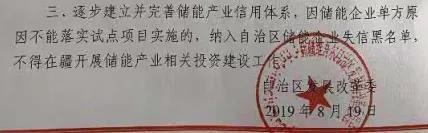 三、逐步建立并完善储能产业信用体系，因储能企业单方原
因不能落实试点项目实施的，纳入自治区储能企业失信黑名单，
不得在疆开展储能产业相关投资建设工作。
自治区发展改革委
2019年8月19日